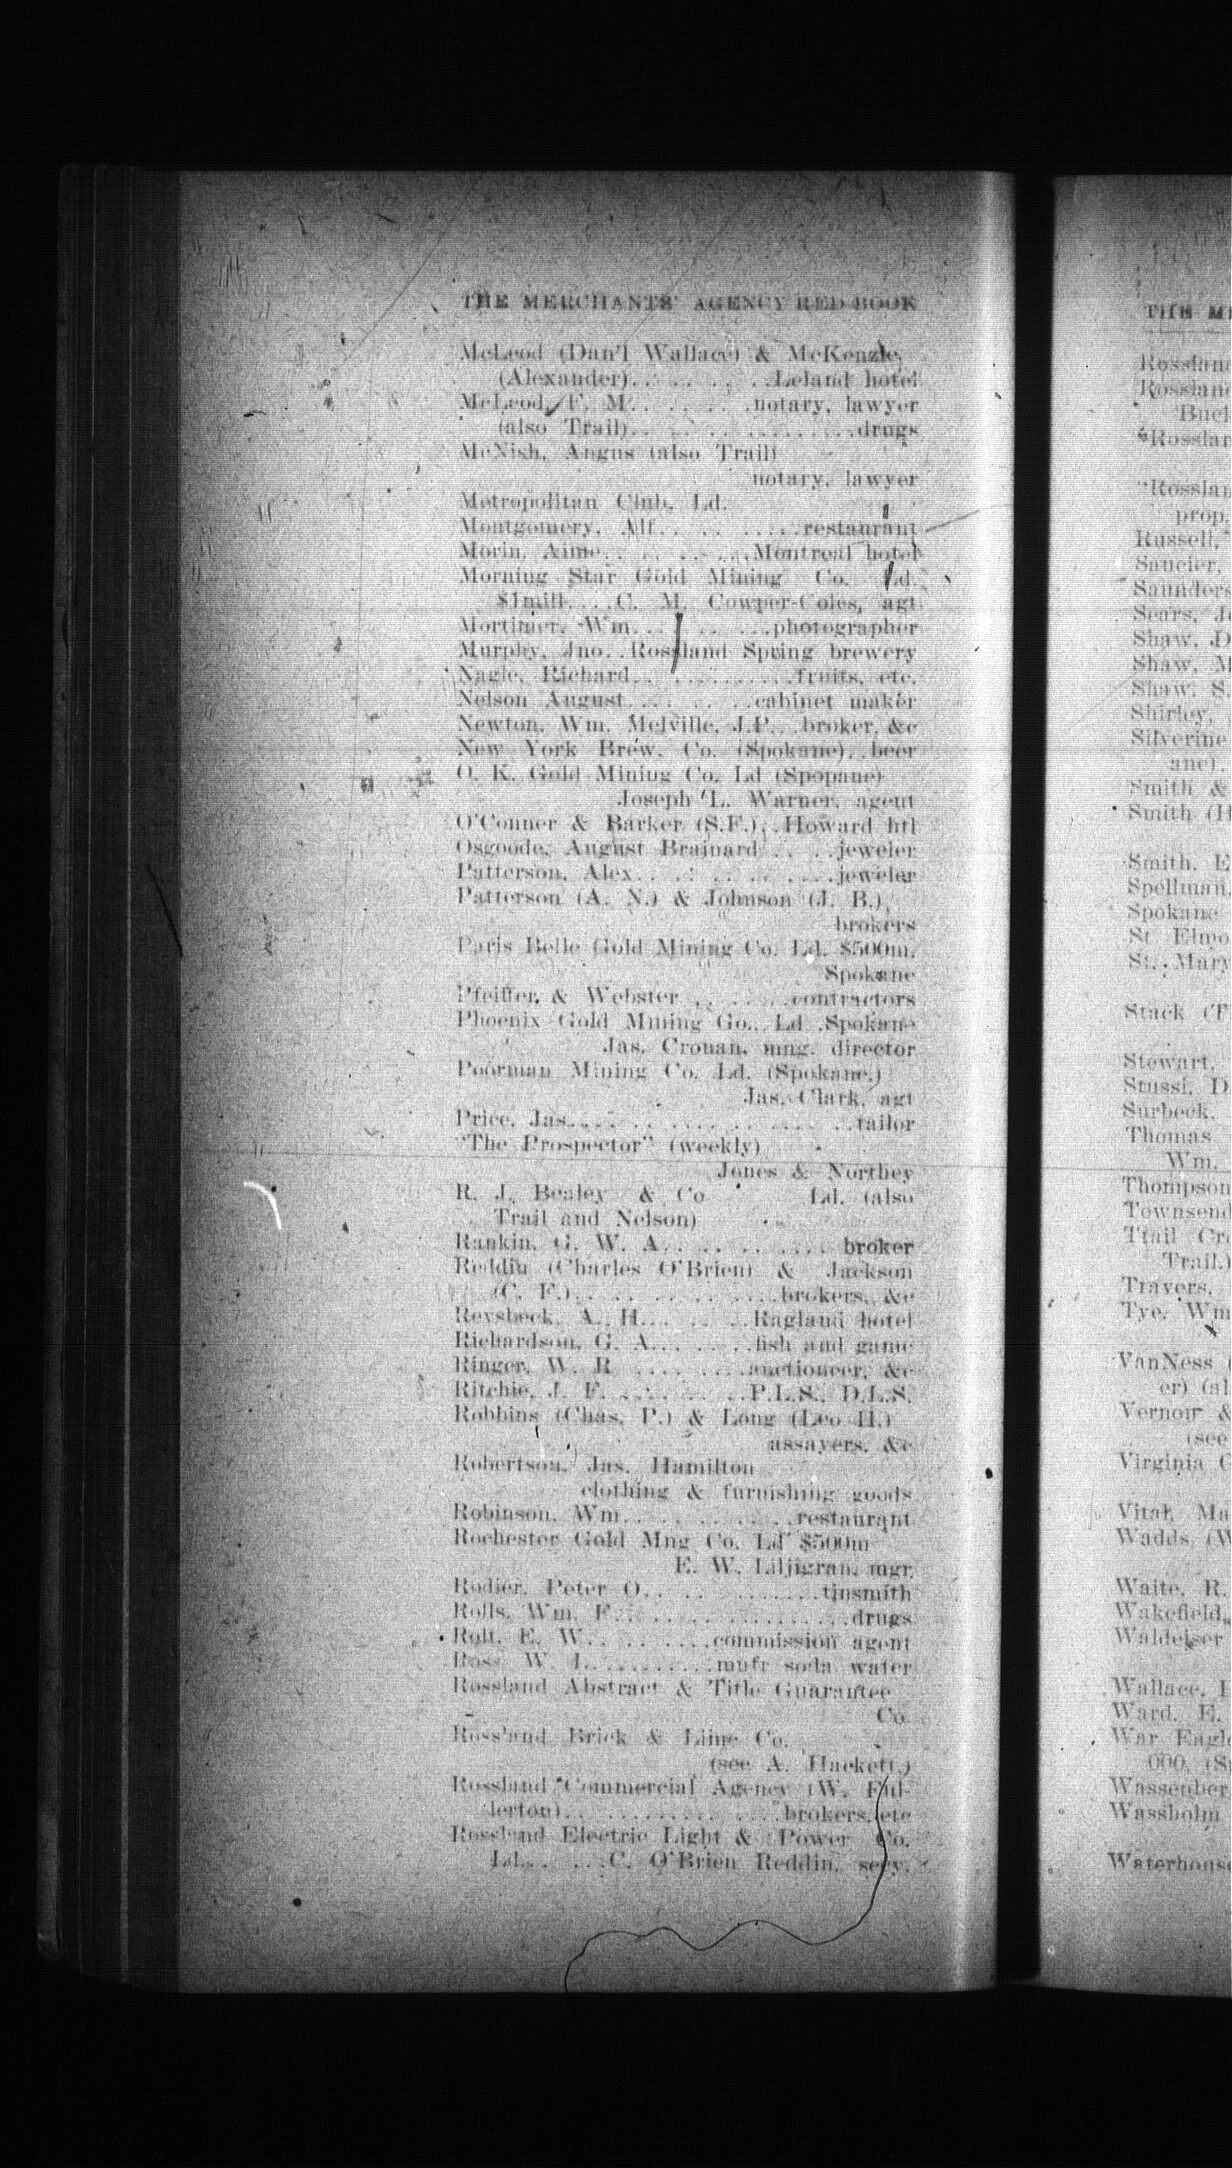 THE MERCHANTS' AGENCY RED BOOK
McLeod (Dan'l Wallace) & McKenzie,
(Alexander).. .. .. ..Leland hotel
McLeod, F. M.. .. .. .notary, lawyer
(also Trail).. .. .. ..........drugs
McNish, Angus (also Trail)
notary, lawyer
Metropolitan Club, Ld.
Montgomery, Alf.. .. .....restaurant
Morin, Aime.. .. .. ...Montreal hotel
Morning Star Gold Mining Co. Ld.
$1mill....C. M. Cowper-Coles, agt
Mortimer, Wm... .. .. ...photographer
Murphy, Jno..Rossland Spring brewery
Nagle, Richard.. ..........fruits, etc.
Nelson August.... .. ..cabinet maker
Newton, Wm. Melville, J.P...broker, &c
New York Brew. Co. (Spokane)..beer
O. K. Gold Mining Co. Ld (Spopane)
Joseph L. Warner, agent
O'Conner & Barker (S.F.)..Howard htl
Osgoode, August Brainard .. ..jeweler
Patterson, Alex.. .. .. .. ....jeweler
Patterson (A. N.) & Johnson (J. B.),
brokers
Paris Belle Gold Mining Co. Ld. $500m.
Spokane
Pfeiffer, & Webster .. .. ...contractors
Phoenix Gold Mining Go., Ld .Spokane
Jas. Cronan, mng. director
Poorman Mining Co. Ld. (Spokane.)
Jas. Clark, agt
Price, Jas.... .. .... .. .... ..tailor
"The Prospector" (weekly)
Jones & Northey
R. J. Bealey & Co Ld. (also
Trail and Nelson)
Rankin, G. W. A.. .. .. .... broker
Reddin (Charles O'Brien) & Jackson
(C. F.).. .. .. .. .. ....brokers, &c
Reysbeck, A. H... .. ..Ragland hotel
Richardson, G. A... .. ..fish and game
Ringer, W. R .... .....auctioneer, &c
Ritchie, J. F. .. .. .. ..P.L.S., D.L.S.
Robbins (Chas. P.) & Long (Leo H.)
assayers, &c
Robertson, Jas. Hamilton
clothing & furnishing goods
Robinson, Wm.. .. .. .. ..restaurant
Rochester Gold Mng Co. Ld $500m
E. W. Liljigran, mgr.
Rodier, Peter O.. .. ..........tinsmith
Rolls, Wm. F.. .. .. .. ........drugs
Rolt, E. W.. .. .....commission agent
Ross W. J.. .........mnfr soda water
Rossland Abstract & Title Guarantee
Co.
Rossland Brick & Lime Co.
(see A. Hackett.)
Rossland Commercial Agency (W. Ful-
lerton).. ......... ....brokers, etc
Rossland Electric Light & Power Co.
Ld... ....C. O'Brien Reddin, secy.
THE
Russell,
Saucier,
Saunders
Shaw, D
Shaw, M
Shaw, S
Shirley,
Silverine
ane).
Smith &
Smith (H
Smith, E
Spellman,
Spokane
St Elmo
St. Mary
Stack (T
Stewart,
Stussi, D
Surbeck,
Thomas
Wm.
Thompson
Townsend
Trail.)
Travers,
Tye, Wm
VanNess
Vernoir &
(see
Virginia G
Wadds (W
Waite, R.
Wakefield,
Wallace,
Ward, E.
War Eagle
Wassholm
Waterhouse